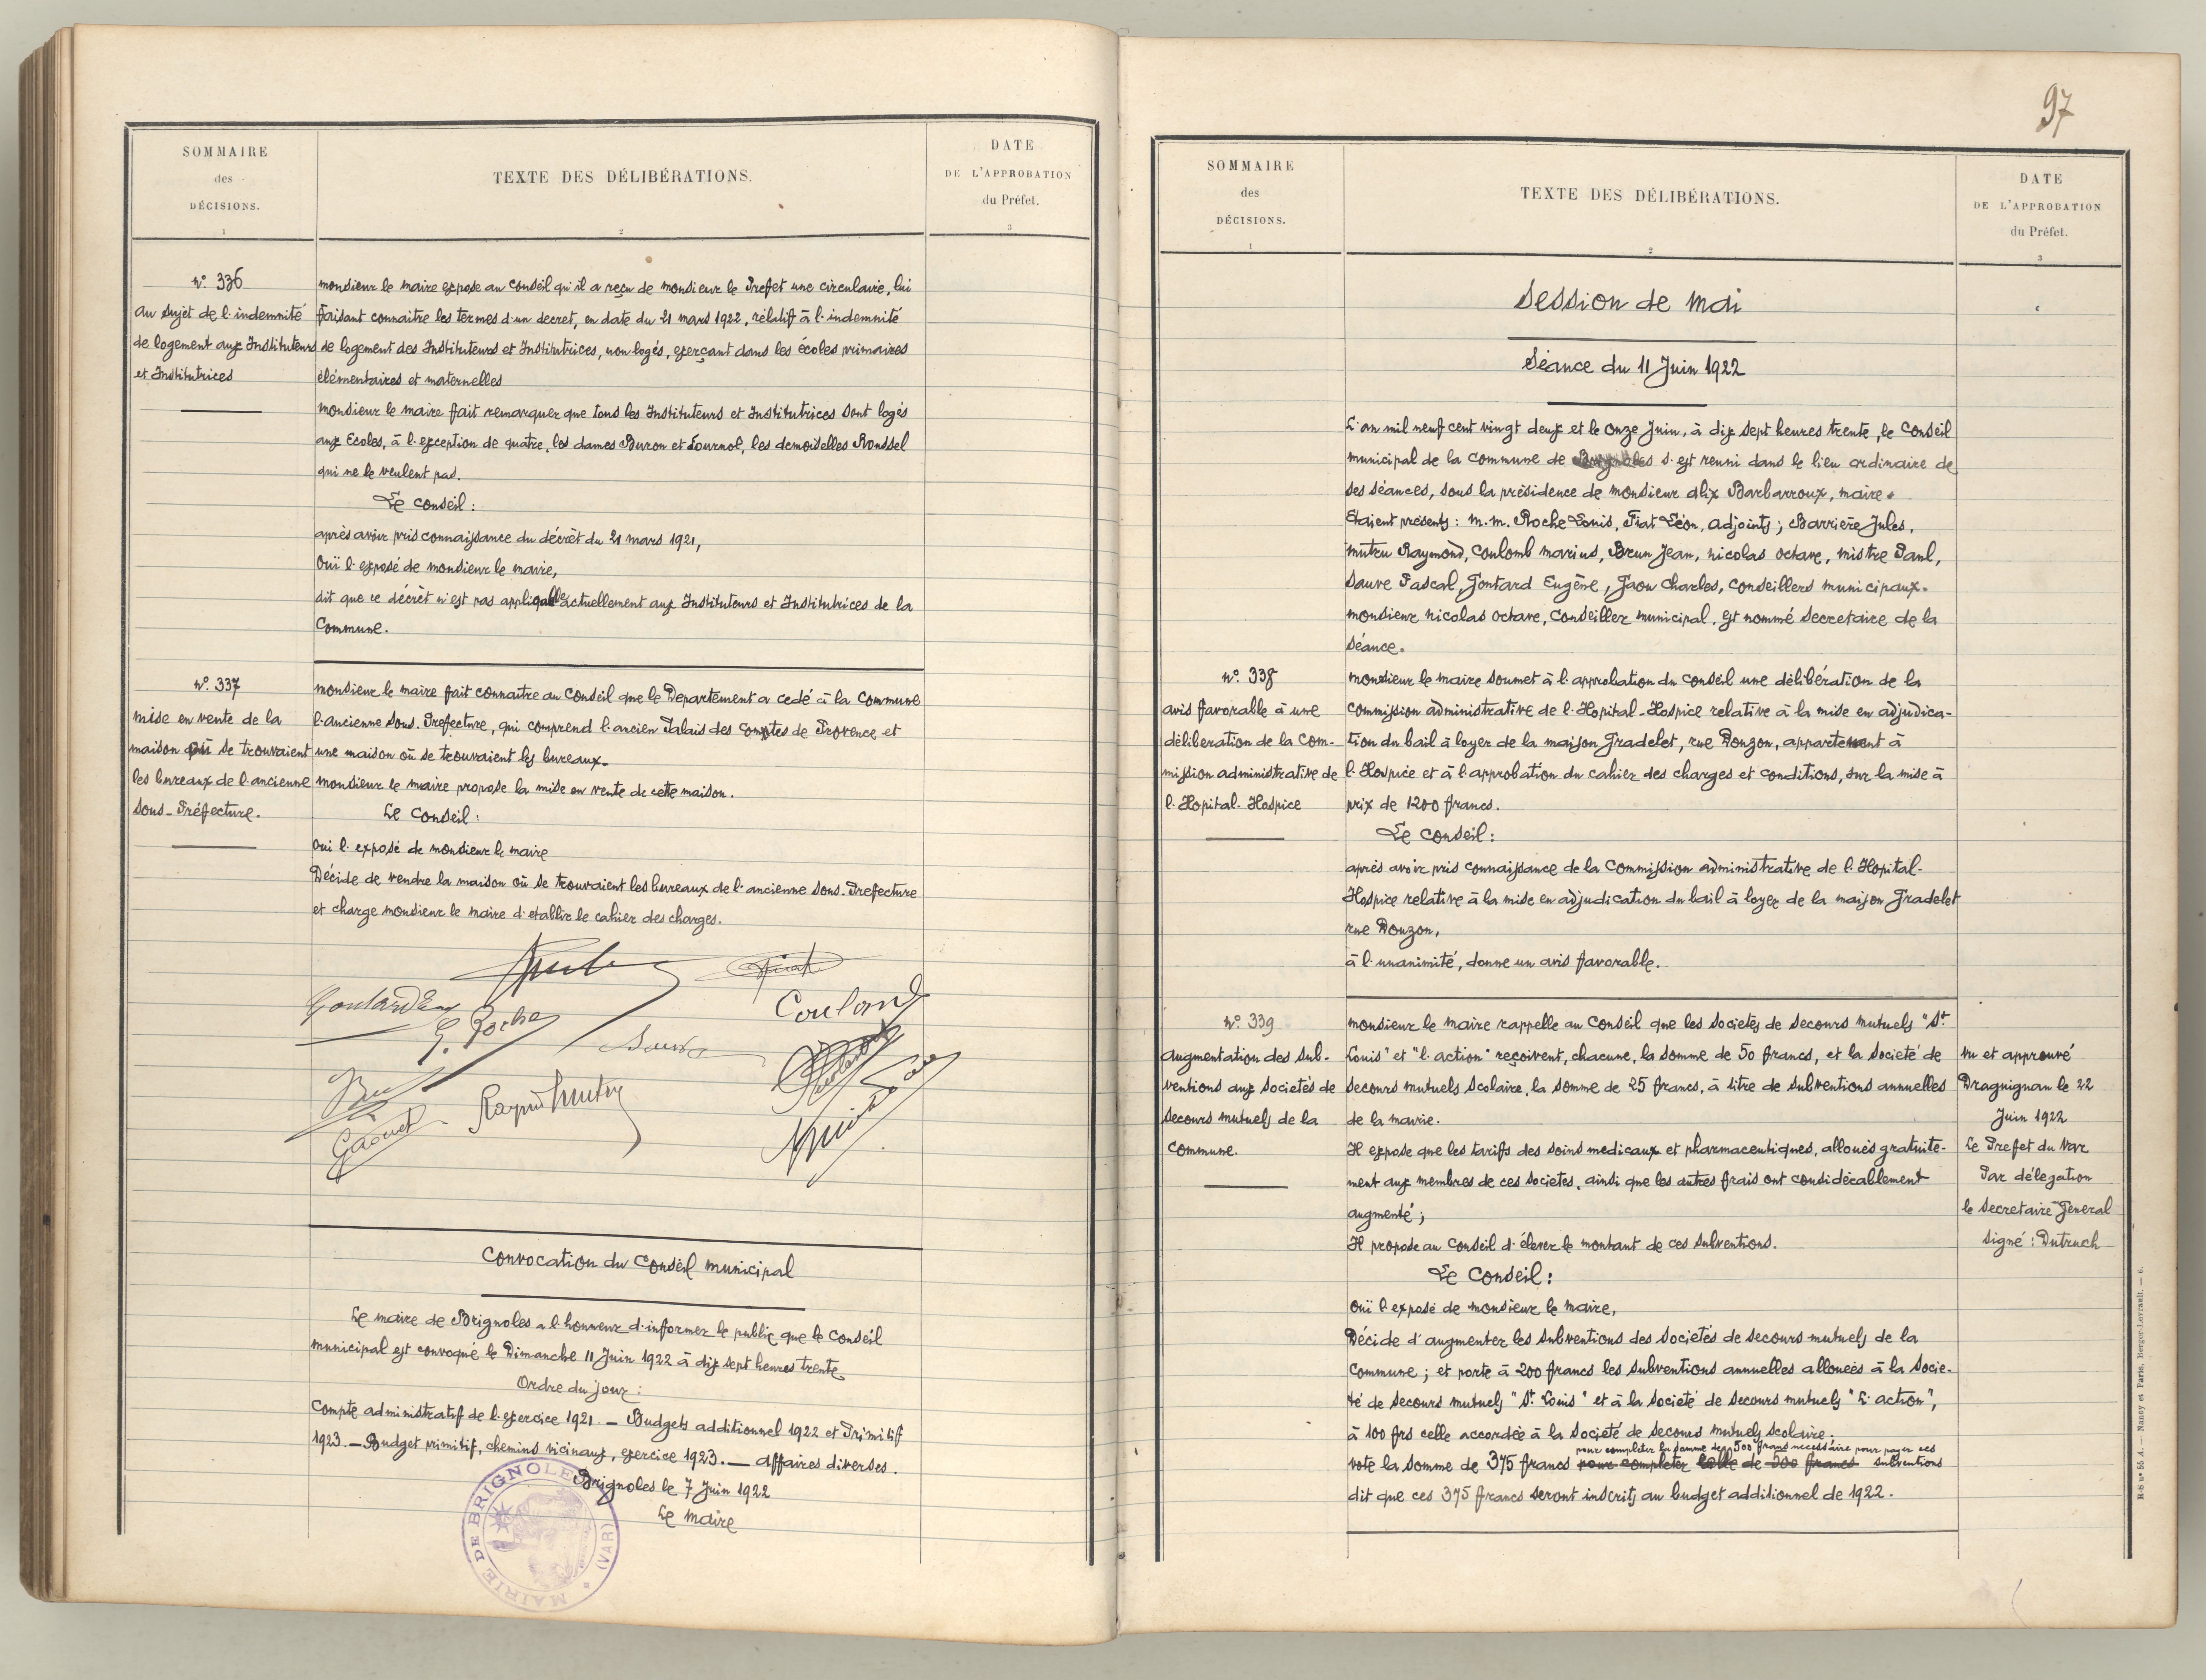 SOMMAIRE
des
DÉCISIONS.
1
TEXTE DES DÉLIBÉRATIONS.
2
DATE
DE L'APPROBATION
du Préfet.
3
N° 336
Au sujet de l'indemnité
de logement aux Instituteurs
et Institutrices
Monsieur le Maire expose au Conseil qu'il a reçu de Monsieur le Prefet une circulaire, lui
faisant connaitre les termes d'un decret, en date du 21 mars 1922, rélatif à l'indemnité
de logement des Instituteurs et Institutrices, non logés, exerçant dans les écoles primaires
élémentaires et maternelles
Monsieur le Maire fait remarquer que tous les Instituteurs et Institutrices sont logés
aux Ecoles, à l'exception de quatre, les dames Buron et Fournol, les demoiselles Roussel
qui ne le veulent pas.
Le Conseil :
après avoir pris connaissance du décrèt du 21 mars 1921,
Ouï l'exposé de Monsieur le Maire,
dit que ce décrèt n'est pas applicable actuellement aux Instituteurs et Institutrices de la
Commune.
N° 337
Mise en vente de la
maison où se trouvaient
les bureaux de l'ancienne
Sous-Préfecture.
Monsieur le Maire fait connaître au Conseil que le Departement a cedé à la Commune
l'ancienne Sous-Prefecture, qui comprend l'ancien Palais des Comptes de Provence et
une maison où se trouvaient les bureaux.
Monsieur le Maire propose la mise en vente de cette maison.
Le Conseil :
Oui l'exposé de Monsieur le Maire
Décide de vendre la maison où se trouvaient les bureaux de l'ancienne Sous-Prefecture
et charge Monsieur le Maire d'etablir le cahier des charges.
Coulomb
Raymd Mutru
Convocation du Conseil Municipal
Le Maire de Brignoles a l'honneur d'informer le public que le Conseil
Municipal est convoqué le Dimanche 11 Juin 1922 à dix sept heures trente
Ordre du jour :
Compte administratif de l'exercice 1921. — Budgets additionnel 1922 et Primitif
1923. — Budget primitif, chemins vicinaux, exercice 1923. — Affaires diverses.
Brignoles le 7 Juin 1922
Le Maire
MAIRIE DE BRIGNOLES (VAR)
97
SOMMAIRE
des
DÉCISIONS.
1
TEXTE DES DÉLIBÉRATIONS.
2
DATE
DE L'APPROBATION
du Préfet.
3
Session de Mai
Séance du 11 Juin 1922
L'an mil neuf cent vingt deux et le onze Juin, à dix sept heures trente, le Conseil
Municipal de la Commune de Brignoles s'est reuni dans le lieu ordinaire de
ses séances, sous la présidence de Monsieur Alix Barbarroux, Maire.
Etaient présents : M.M. Roche Louis, Fiat Léon, adjoints ; Barrière Jules,
Mutru Raymond, Coulomb Marius, Brun Jean, Nicolas Octave, Mistre Paul,
Sauve Pascal, Gontard Eugène, Gaou Charles, Conseillers Municipaux.
Monsieur Nicolas Octave, Conseiller Municipal, est nommé Secretaire de la
Séance.
N° 338
Avis favorable à une
déliberation de la Com-
mission administrative de
l'Hopital-Hospice
Monsieur le Maire soumet à l'approbation du Conseil une délibération de la
Commission administrative de l'Hopital-Hospice relative à la mise en adjudica-
tion du bail à loyer de la maison Gradelet, rue Douzon, appartenant à
l'Hospice et à l'approbation du cahier des charges et conditions, sur la mise à
prix de 1200 francs.
Le Conseil :
après avoir pris connaissance de la Commission administrative de l'Hopital-
Hospice relative à la mise en adjudication du bail à loyer de la maison Gradelet
rue Douzon,
à l'unanimité, donne un avis favorable.
N° 339
Augmentation des sub-
ventions aux Societés de
secours mutuels de la
Commune.
Monsieur le Maire rappelle au Conseil que les Societés de Secours Mutuels "St.
Louis" et "l'action" reçoivent, chacune, la somme de 50 francs, et la Societé de
Secours Mutuels Scolaire, la somme de 25 francs, à titre de subventions annuelles
de la mairie.
Il expose que les tarifs des soins medicaux et pharmaceutiques, alloués gratuite-
ment aux membres de ces societés, ainsi que les autres frais ont considérablement
augmenté ;
Il propose au Conseil d'élever le montant de ces subventions.
Le Conseil :
Ouï l'exposé de Monsieur le Maire,
Décide d'augmenter les subventions des Societés de secours mutuels de la
Commune ; et porte à 200 francs les subventions annuelles allouées à la Socie-
té de Secours Mutuels "St. Louis" et à la Societé de Secours mutuels "L'action",
à 100 frs celle accordée à la Societé de secours mutuels scolaire.
pour completer la somme de 500 francs necessaire pour payer ces
vote la somme de 375 francs pour completer celle de 500 francs subventions
dit que ces 375 francs seront inscrits au budget additionnel de 1922.
Vu et approuvé
Draguignan le 22
Juin 1922
Le Prefet du Var
Par délegation
le Secretaire General
Signé : Dutruch
R-S n° 55 A. — Nancy et Paris, Berger-Levrault. — 6.